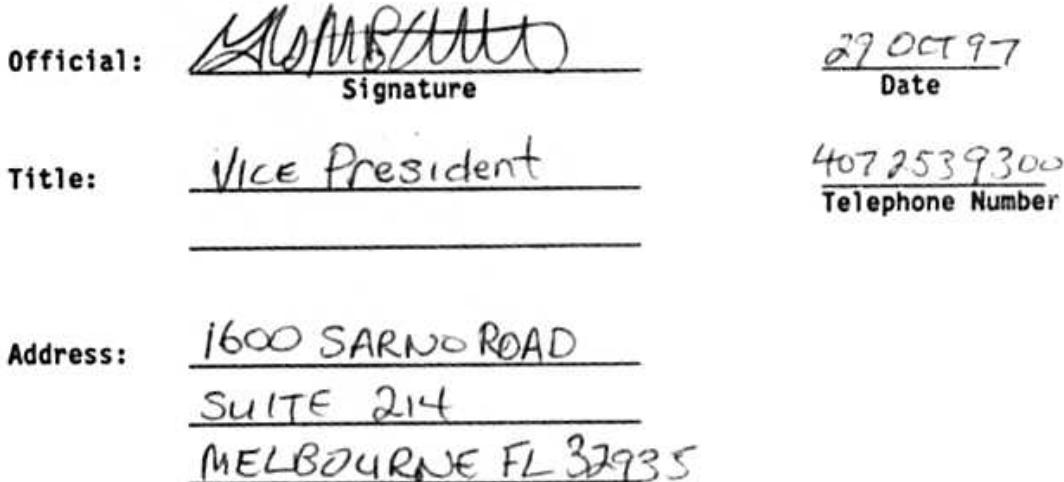 Official:
29 OCT 97
Signature
Date
Title:
VICE President
4072539300
Telephone Number
Address:
1600 SARNO ROAD
SUITE 214
MELBOURNE FL 32935